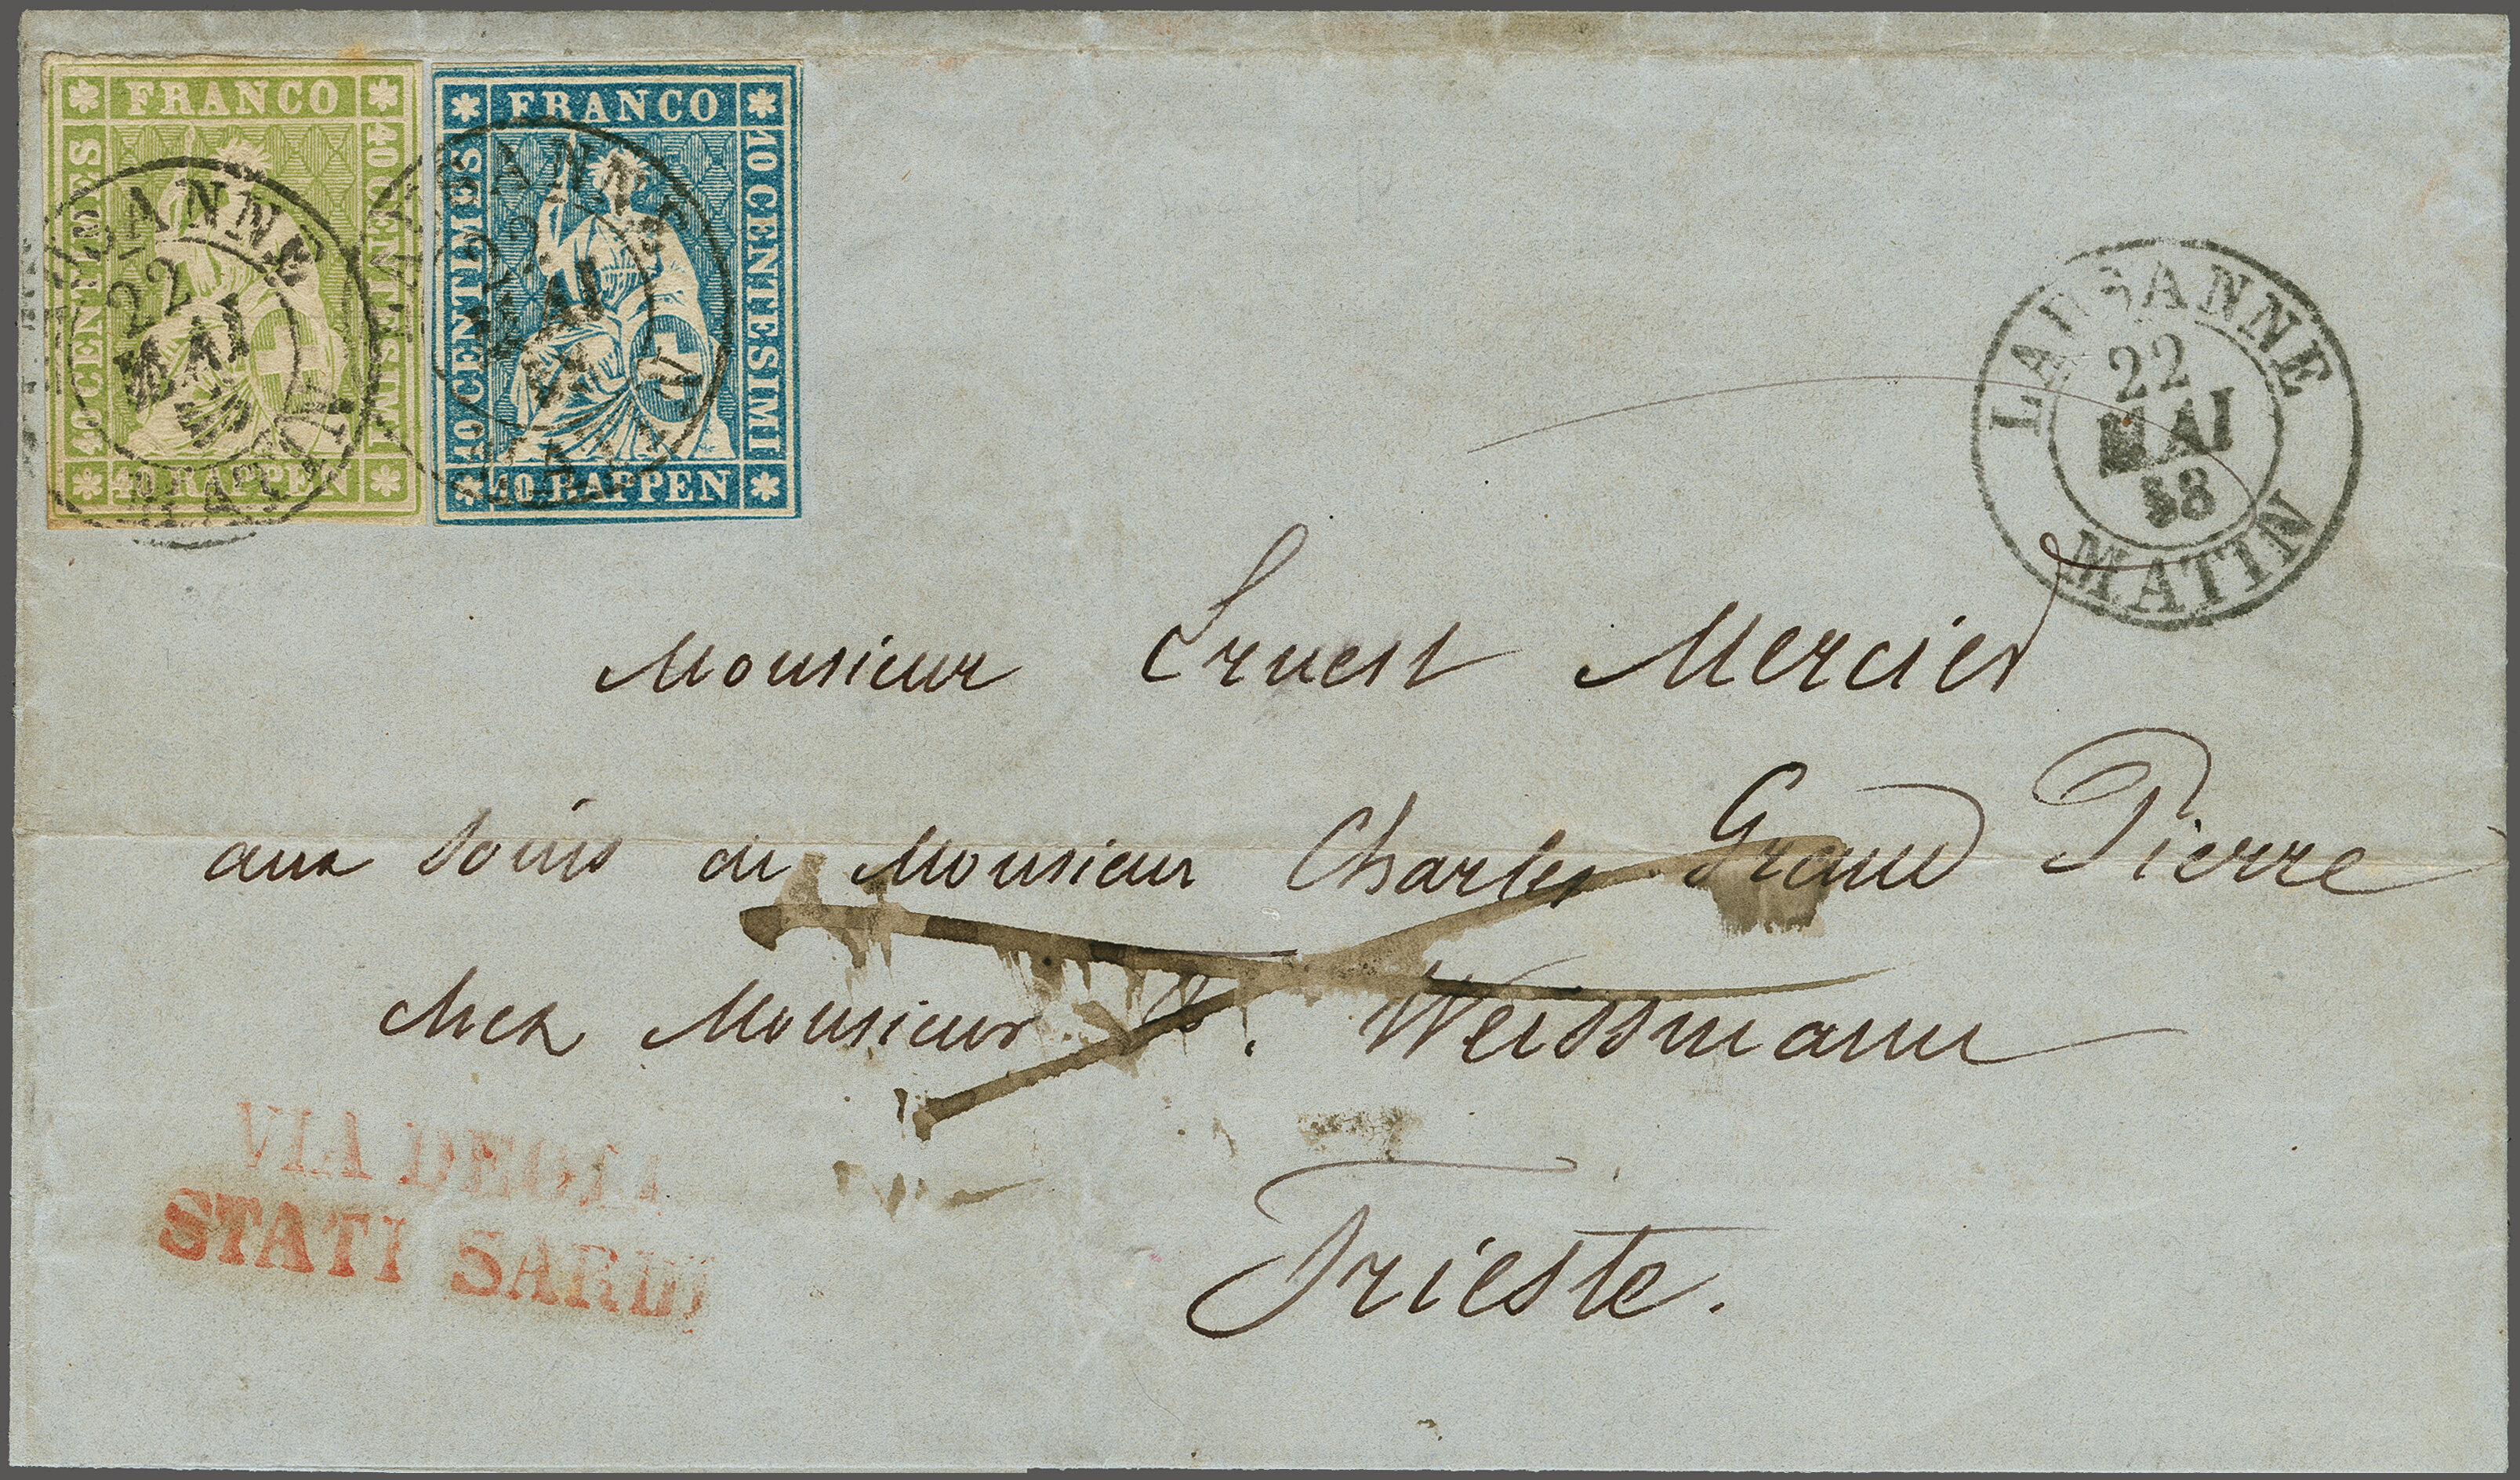 FRANCO
40 CENTIMES
40 CENTESIMI
40 RAPPEN
LAUSANNE
22
MAI
MATIN
FRANCO
10 CENTIMES
10 CENTESIMI
10 RAPPEN
LAUSANNE
22
MAI
MATIN
LAUSANNE
22
MAI
58
MATIN
Monsieur Ernest Mercier
aux soins de Monsieur Charles Grand Pierre
chez Monsieur . Weissmann
VIA DEGLI
STATI SARDI
Trieste.